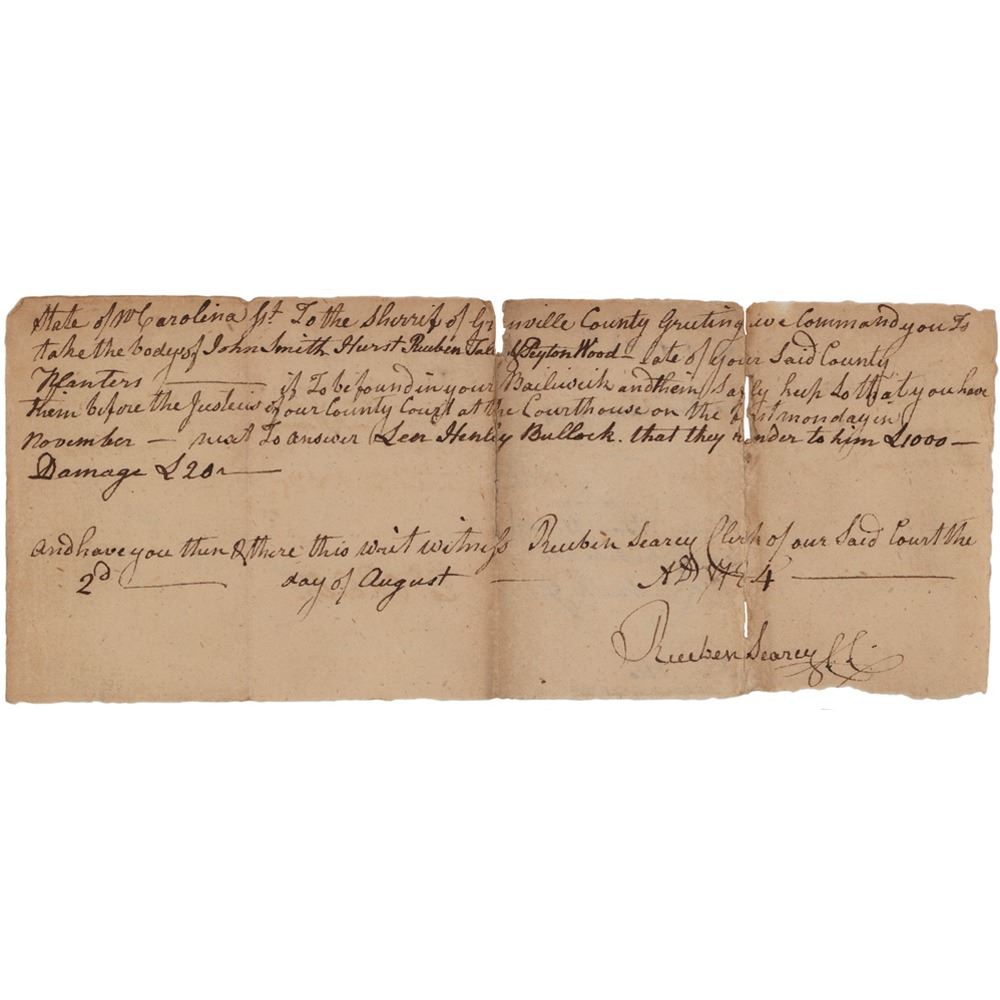 State of No Carolina ss.t To the Sherrif of Gr nville County Greeting we Command you To
take the bodys of John Smith Hurst Reuben & Peyton Wood — late of your Said County
Planters ——— if To be found in your Bailiwick and them Safly keep So that you have
them before the Justices of our County Court at the Courthouse on the first monday in
November — next To answer Len Henley Bullock. that they render to him £1000 —
Damage £20 ——
and have you then & there this writ witness Reuben Searcy Clerk of our Said Court the
2d ——— day of August — AD 1784 ———
Reuben Searcy CC